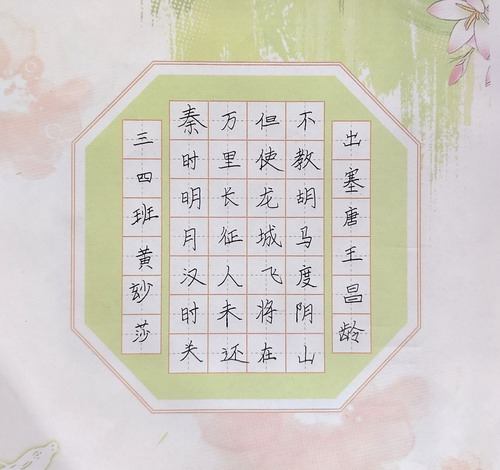 出塞唐王昌龄
秦时明月汉时关
万里长征人未还
但使龙城飞将在
不教胡马度阴山
三四班黄莎